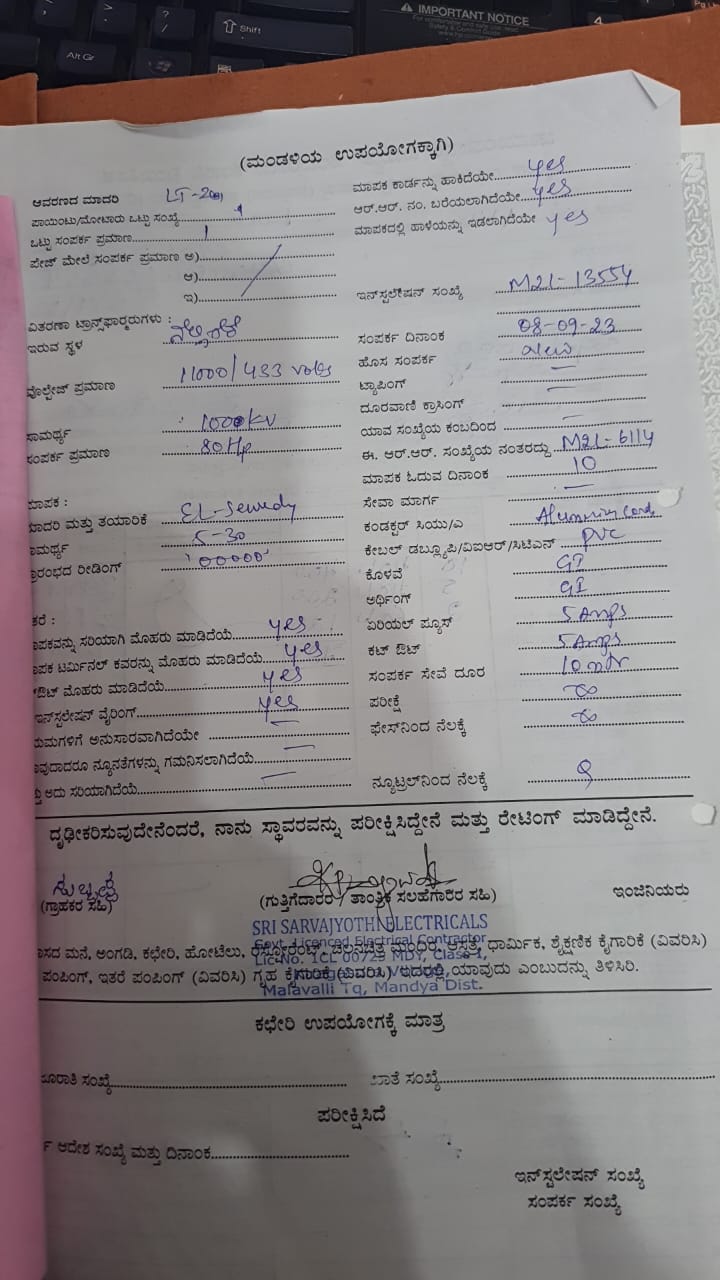 Alt Gr
Shift
IMPORTANT NOTICE
(ಮಂಡಳಿಯ ಉಪಯೋಗಕ್ಕಾಗಿ)
ಆವರಣದ ಮಾದರಿ LT-2(a)
ಪಾಯಿಂಟು/ಮೋಟಾರು ಒಟ್ಟು ಸಂಖ್ಯೆ
ಒಟ್ಟು ಸಂಪರ್ಕ ಪ್ರಮಾಣ 1
ಪೇಜ್ ಮೇಲೆ ಸಂಪರ್ಕ ಪ್ರಮಾಣ ಅ)
ಆ)
ಇ)
ವಿತರಣಾ ಟ್ರಾನ್ಸ್‌ಫಾರ್ಮರುಗಳು :
ಇರುವ ಸ್ಥಳ
ವೊಲ್ಟೇಜ್ ಪ್ರಮಾಣ 11000/433 volts
ಸಾಮರ್ಥ್ಯ 100KV
ಸಂಪರ್ಕ ಪ್ರಮಾಣ 80Hp
ಮಾಪಕ :
ಮಾದರಿ ಮತ್ತು ತಯಾರಿಕೆ EL-Sewedy
ಸಾಮರ್ಥ್ಯ 5-30
ಪ್ರಾರಂಭದ ರೀಡಿಂಗ್ '00000'
ಇತರೆ :
ಮಾಪಕವನ್ನು ಸರಿಯಾಗಿ ಮೊಹರು ಮಾಡಿದೆಯೆ yes
ಮಾಪಕ ಟರ್ಮಿನಲ್ ಕವರನ್ನು ಮೊಹರು ಮಾಡಿದೆಯೆ yes
ಔಟ್ ಮೊಹರು ಮಾಡಿದೆಯೆ yes
ಇನ್‌ಸ್ಟಲೇಷನ್ ವೈರಿಂಗ್ yes
ನಿಯಮಗಳಿಗೆ ಅನುಸಾರವಾಗಿದೆಯೇ —
ಯಾವುದಾದರೂ ನ್ಯೂನತೆಗಳನ್ನು ಗಮನಿಸಲಾಗಿದೆಯೆ —
ಮತ್ತು ಅದು ಸರಿಯಾಗಿದೆಯೆ —
ಮಾಪಕ ಕಾರ್ಡನ್ನು ಹಾಕಿದೆಯೇ yes
ಆರ್.ಆರ್. ನಂ. ಬರೆಯಲಾಗಿದೆಯೇ yes
ಮಾಪಕದಲ್ಲಿ ಹಾಳೆಯನ್ನು ಇಡಲಾಗಿದೆಯೇ yes
ಇನ್‌ಸ್ಟಲೇಷನ್ ಸಂಖ್ಯೆ M2L-13554
ಸಂಪರ್ಕ ದಿನಾಂಕ 08-09-23
ಹೊಸ ಸಂಪರ್ಕ New
ಟ್ಯಾಪಿಂಗ್ —
ದೂರವಾಣಿ ಕ್ರಾಸಿಂಗ್ —
ಯಾವ ಸಂಖ್ಯೆಯ ಕಂಬದಿಂದ —
ಈ. ಆರ್.ಆರ್. ಸಂಖ್ಯೆಯ ನಂತರದ್ದು M2L-6114
ಮಾಪಕ ಓದುವ ದಿನಾಂಕ 10
ಸೇವಾ ಮಾರ್ಗ —
ಕಂಡಕ್ಟರ್ ಸಿಯು/ಎ
ಕೇಬಲ್ ಡಬ್ಲ್ಯೂಪಿ/ವಿಐಆರ್/ಸಿಟಿಎಸ್ PVC
ಕೊಳವೆ GI
ಅರ್ಥಿಂಗ್ GI
ಏರಿಯಲ್ ಫ್ಯೂಸ್ 5 Amps
ಕಟ್ ಔಟ್ 5 Amps
ಸಂಪರ್ಕ ಸೇವೆ ದೂರ 10 mtr
ಪರೀಕ್ಷೆ ∞
ಫೇಸ್‌ನಿಂದ ನೆಲಕ್ಕೆ ∞
ನ್ಯೂಟ್ರಲ್‌ನಿಂದ ನೆಲಕ್ಕೆ
ದೃಢೀಕರಿಸುವುದೇನೆಂದರೆ, ನಾನು ಸ್ಥಾವರವನ್ನು ಪರೀಕ್ಷಿಸಿದ್ದೇನೆ ಮತ್ತು ರೇಟಿಂಗ್ ಮಾಡಿದ್ದೇನೆ.
(ಗ್ರಾಹಕರ ಸಹಿ) (ಗುತ್ತಿಗೆದಾರರ / ತಾಂತ್ರಿಕ ಸಲಹೆಗಾರರ ಸಹಿ) ಇಂಜಿನಿಯರು
SRI SARVAJYOTHI ELECTRICALS
Govt. Licenced Electrical Contractor
Lic No. 1CL 00729 MDY, Class-1,
Malavalli Tq, Mandya Dist.
ವಾಸದ ಮನೆ, ಅಂಗಡಿ, ಕಛೇರಿ, ಹೋಟೆಲು, ರೆಸ್ಟೋರೆಂಟ್, ಚಲನಚಿತ್ರ ಮಂದಿರ, ಆಸ್ಪತ್ರೆ, ಧಾರ್ಮಿಕ, ಶೈಕ್ಷಣಿಕ ಕೈಗಾರಿಕೆ (ವಿವರಿಸಿ)
ಪಂಪಿಂಗ್, ಇತರೆ ಪಂಪಿಂಗ್ (ವಿವರಿಸಿ) ಗೃಹ ಕೈಗಾರಿಕೆ (ವಿವರಿಸಿ) ಇದರಲ್ಲಿ ಯಾವುದು ಎಂಬುದನ್ನು ತಿಳಿಸಿರಿ.
ಕಛೇರಿ ಉಪಯೋಗಕ್ಕೆ ಮಾತ್ರ
ಸಂಖ್ಯೆ ಖಾತೆ ಸಂಖ್ಯೆ
ಪರೀಕ್ಷಿಸಿದೆ
ಆದೇಶ ಸಂಖ್ಯೆ ಮತ್ತು ದಿನಾಂಕ
ಇನ್‌ಸ್ಟಲೇಷನ್ ಸಂಖ್ಯೆ
ಸಂಪರ್ಕ ಸಂಖ್ಯೆ